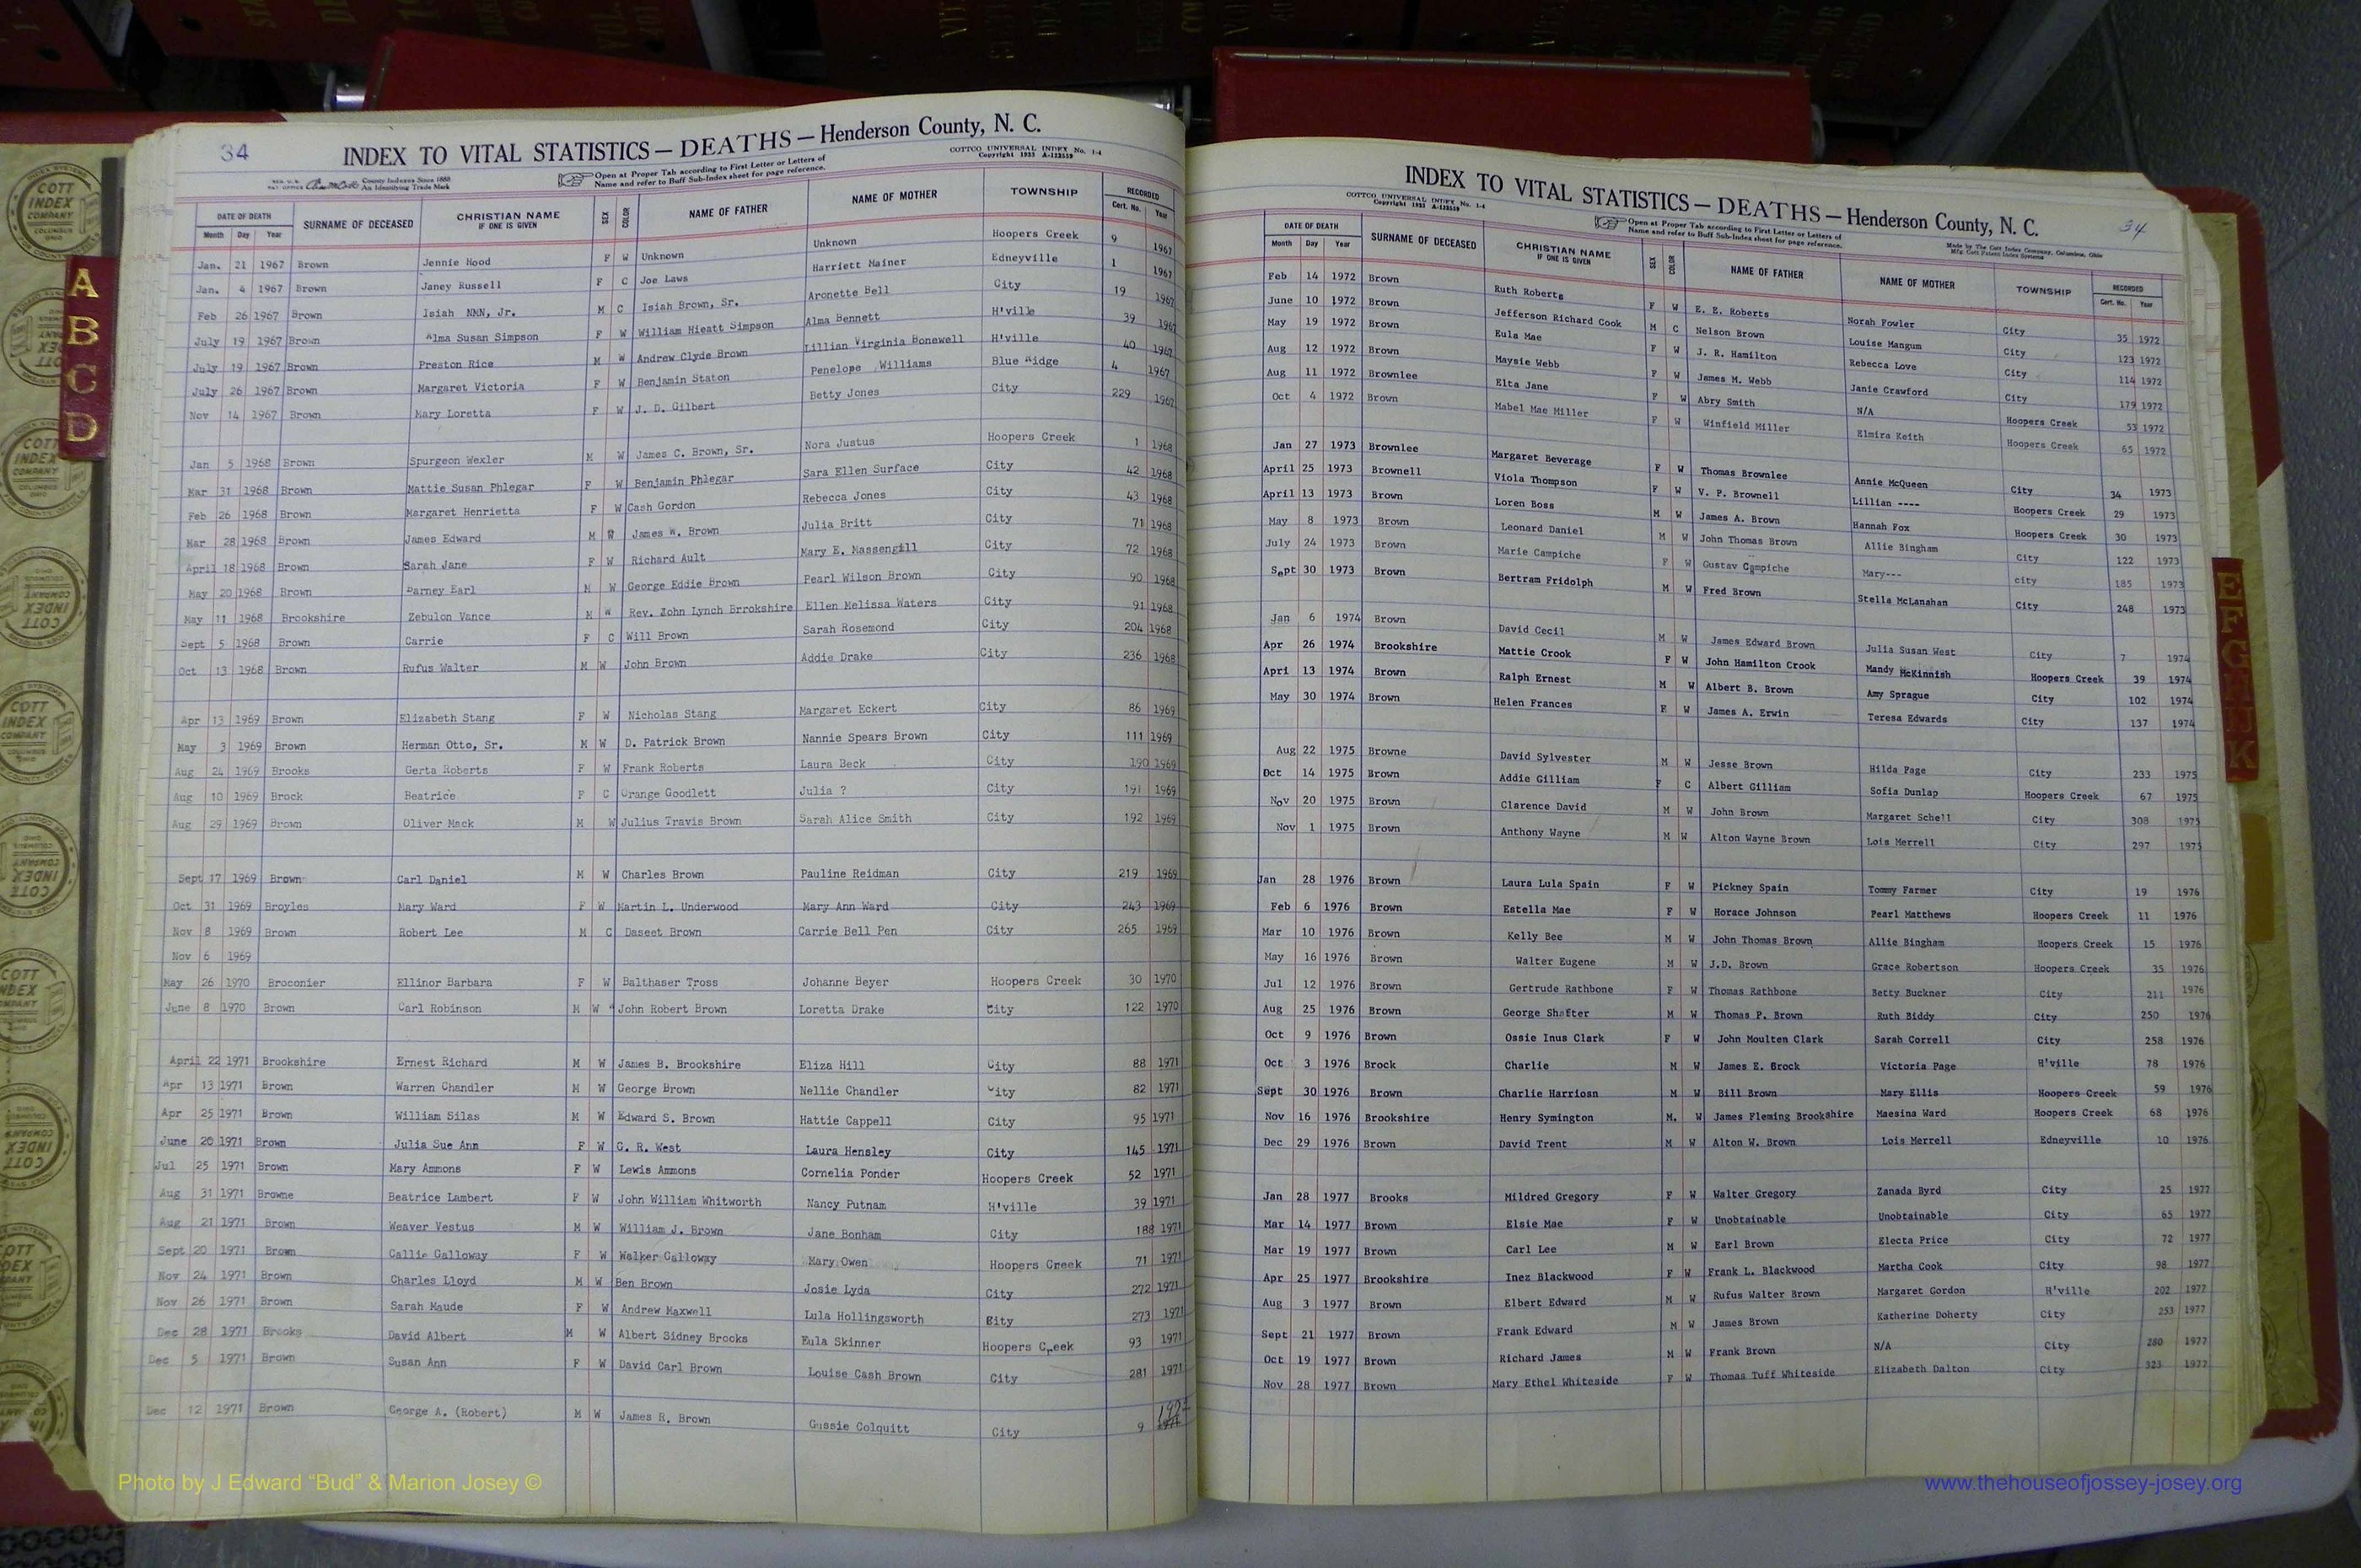 34
INDEX TO VITAL STATISTICS — DEATHS — Henderson County, N. C.
COTTCO UNIVERSAL INDEX No. 1-4
Copyright 1933 A-122559
County Indexes Since 1888
An Identifying Trade Mark
Open at Proper Tab according to First Letter or Letters of
Name and refer to Buff Sub-Index sheet for page reference.
DATE OF DEATH Month Day Year SURNAME OF DECEASED CHRISTIAN NAME IF ONE IS GIVEN SEX COLOR NAME OF FATHER NAME OF MOTHER TOWNSHIP RECORDED Cert. No. Year
Jan. 21 1967 Brown Jennie Hood F W Unknown Unknown Hoopers Creek 9 1967
Jan. 4 1967 Brown Janey Russell F C Joe Laws Harriett Mainer Edneyville 1 1967
Feb 26 1967 Brown Isiah NMN, Jr. M C Isiah Brown, Sr. Aronette Bell City 19 1967
July 19 1967 Brown Alma Susan Simpson F W William Hieatt Simpson Alma Bennett H'ville 39 1967
July 19 1967 Brown Preston Rice M W Andrew Clyde Brown Lillian Virginia Bonewell H'ville 40 1967
July 26 1967 Brown Margaret Victoria F W Benjamin Staton Penelope Williams Blue Ridge 4 1967
Nov 14 1967 Brown Mary Loretta F W J. D. Gilbert Betty Jones City 229 1967
Jan 5 1968 Brown Spurgeon Wexler M W James C. Brown, Sr. Nora Justus Hoopers Creek 1 1968
Mar 31 1968 Brown Mattie Susan Phlegar F W Benjamin Phlegar Sara Ellen Surface City 42 1968
Feb 26 1968 Brown Margaret Henrietta F W Cash Gordon Rebecca Jones City 43 1968
Mar 28 1968 Brown James Edward M W James W. Brown Julia Britt City 71 1968
April 18 1968 Brown Sarah Jane F W Richard Ault Mary E. Massengill City 72 1968
May 20 1968 Brown Darney Earl M W George Eddie Brown Pearl Wilson Brown City 90 1968
May 11 1968 Brookshire Zebulon Vance M W Rev. Zohn Lynch Brrokshire Ellen Melissa Waters City 91 1968
Sept 5 1968 Brown Carrie F C Will Brown Sarah Rosemond City 204 1968
Oct 13 1968 Brown Rufus Walter M W John Brown Addie Drake City 236 1968
Apr 13 1969 Brown Elizabeth Stang F W Nicholas Stang Margaret Eckert City 86 1969
May 3 1969 Brown Herman Otto, Sr. M W D. Patrick Brown Nannie Spears Brown City 111 1969
Aug 24 1969 Brooks Gerta Roberts F W Frank Roberts Laura Beck City 190 1969
Aug 10 1969 Brock Beatrice F C Orange Goodlett Julia ? City 191 1969
Aug 29 1969 Brown Oliver Mack M W Julius Travis Brown Sarah Alice Smith City 192 1969
Sept 17 1969 Brown Carl Daniel M W Charles Brown Pauline Reidman City 219 1969
Oct 31 1969 Broyles Mary Ward F W Martin L. Underwood Mary Ann Ward City 243 1969
Nov 8 1969 Brown Robert Lee M C Daseet Brown Carrie Bell Pen City 265 1969
Nov 6 1969
May 26 1970 Broconier Ellinor Barbara F W Balthaser Tross Johanne Beyer Hoopers Creek 30 1970
June 8 1970 Brown Carl Robinson M W John Robert Brown Loretta Drake City 122 1970
April 22 1971 Brookshire Ernest Richard M W James B. Brookshire Eliza Hill City 88 1971
Apr 13 1971 Brown Warren Chandler M W George Brown Nellie Chandler City 82 1971
Apr 25 1971 Brown William Silas M W Edward S. Brown Hattie Cappell City 95 1971
June 20 1971 Brown Julia Sue Ann F W C. R. West Laura Hensley City 145 1971
Jul 25 1971 Brown Mary Ammons F W Lewis Ammons Cornelia Ponder Hoopers Creek 52 1971
Aug 31 1971 Browne Beatrice Lambert F W John William Whitworth Nancy Putnam H'ville 39 1971
Aug 21 1971 Brown Weaver Vestus M W William J. Brown Jane Bonham City 188 1971
Sept 20 1971 Brown Callie Galloway F W Walker Galloway Mary Owen Hoopers Creek 71 1971
Nov 24 1971 Brown Charles Lloyd M W Ben Brown Josie Lyda City 272 1971
Nov 26 1971 Brown Sarah Maude F W Andrew Maxwell Lula Hollingsworth City 273 1971
Dec 28 1971 Brooks David Albert M W Albert Sidney Brooks Eula Skinner Hoopers Creek 93 1971
Dec 5 1971 Brown Susan Ann F W David Carl Brown Louise Cash Brown City 281 1971
Dec 12 1971 Brown George A. (Robert) M W James R. Brown Gussie Colquitt City 9
INDEX TO VITAL STATISTICS — DEATHS — Henderson County, N. C.
34
COTTCO UNIVERSAL INDEX No. 1-4
Copyright 1933 A-122559
Open at Proper Tab according to First Letter or Letters of
Name and refer to Buff Sub-Index sheet for page reference.
Made by The Cott Index Company, Columbus, Ohio
Mfg Cott Patent Index Systems
DATE OF DEATH Month Day Year SURNAME OF DECEASED CHRISTIAN NAME IF ONE IS GIVEN SEX COLOR NAME OF FATHER NAME OF MOTHER TOWNSHIP RECORDED Cert. No. Year
Feb 14 1972 Brown Ruth Roberts F W E. E. Roberts Norah Fowler City 35 1972
June 10 1972 Brown Jefferson Richard Cook M C Nelson Brown Louise Mangum City 123 1972
May 19 1972 Brown Eula Mae F W J. R. Hamilton Rebecca Love City 114 1972
Aug 12 1972 Brown Maysie Webb F W James M. Webb Janie Crawford City 179 1972
Aug 11 1972 Brownlee Elta Jane F W Abry Smith N/A Hoopers Creek 53 1972
Oct 4 1972 Brown Mabel Mae Miller F W Winfield Miller Elmira Keith Hoopers Creek 65 1972
Jan 27 1973 Brownlee Margaret Beverage F W Thomas Brownlee Annie McQueen City 34 1973
April 25 1973 Brownell Viola Thompson F W V. P. Brownell Lillian ---- Hoopers Creek 29 1973
April 13 1973 Brown Loren Boss M W James A. Brown Hannah Fox Hoopers Creek 30 1973
May 8 1973 Brown Leonard Daniel M W John Thomas Brown Allie Bingham City 122 1973
July 24 1973 Brown Marie Campiche F W Gustav Campiche Mary--- city 185 1973
Sept 30 1973 Brown Bertram Fridolph M W Fred Brown Stella McLanahan City 248 1973
Jan 6 1974 Brown David Cecil M W James Edward Brown Julia Susan West City 7 1974
Apr 26 1974 Brookshire Mattie Crook F W John Hamilton Crook Mandy McKinnish Hoopers Creek 39 1974
Apri 13 1974 Brown Ralph Ernest M W Albert B. Brown Amy Sprague City 102 1974
May 30 1974 Brown Helen Frances F W James A. Erwin Teresa Edwards City 137 1974
Aug 22 1975 Browne David Sylvester M W Jesse Brown Hilda Page City 233 1975
Oct 14 1975 Brown Addie Gilliam F C Albert Gilliam Sofia Dunlap Hoopers Creek 67 1975
Nov 20 1975 Brown Clarence David M W John Brown Margaret Schell City 308 1975
Nov 1 1975 Brown Anthony Wayne M W Alton Wayne Brown Lois Merrell City 297 1975
Jan 28 1976 Brown Laura Lula Spain F W Pickney Spain Tommy Farmer City 19 1976
Feb 6 1976 Brown Estella Mae F W Horace Johnson Pearl Matthews Hoopers Creek 11 1976
Mar 10 1976 Brown Kelly Bee M W John Thomas Brown Allie Bingham Hoopers Creek 15 1976
May 16 1976 Brown Walter Eugene M W J.D. Brown Grace Robertson Hoopers Creek 35 1976
Jul 12 1976 Brown Gertrude Rathbone F W Thomas Rathbone Betty Buckner City 211 1976
Aug 25 1976 Brown George Shafter M W Thomas P. Brown Ruth Biddy City 250 1976
Oct 9 1976 Brown Ossie Inus Clark F W John Moulten Clark Sarah Correll City 258 1976
Oct 3 1976 Brock Charlie M W James E. Brock Victoria Page H'ville 78 1976
Sept 30 1976 Brown Charlie Harrison M W Bill Brown Mary Ellis Hoopers Creek 59 1976
Nov 16 1976 Brookshire Henry Symington M. W James Fleming Brookshire Maesina Ward Hoopers Creek 68 1976
Dec 29 1976 Brown David Trent M W Alton W. Brown Lois Merrell Edneyville 10 1976
Jan 28 1977 Brooks Mildred Gregory F W Walter Gregory Zanada Byrd City 25 1977
Mar 14 1977 Brown Elsie Mae F W Unobtainable Unobtainable City 65 1977
Mar 19 1977 Brown Carl Lee M W Earl Brown Electa Price City 72 1977
Apr 25 1977 Brookshire Inez Blackwood F W Frank L. Blackwood Martha Cook City 98 1977
Aug 3 1977 Brown Elbert Edward M W Rufus Walter Brown Margaret Gordon H'ville 202 1977
Sept 21 1977 Brown Frank Edward M W James Brown Katherine Doherty City 253 1977
Oct 19 1977 Brown Richard James M W Frank Brown N/A City 280 1977
Nov 28 1977 Brown Mary Ethel Whiteside F W Thomas Tuff Whiteside Elizabeth Dalton City 323 1977
A
B
C
D
E
F
G
H
K
COTT
INDEX
COMPANY
COLUMBUS
OHIO
Photo by J Edward “Bud” & Marion Josey ©
www.thehouseofjossey-josey.org